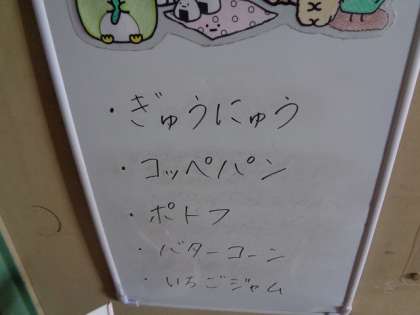 ・ぎゅうにゅう
・コッペパン
・ポトフ
・バターコーン
・いちごジャム